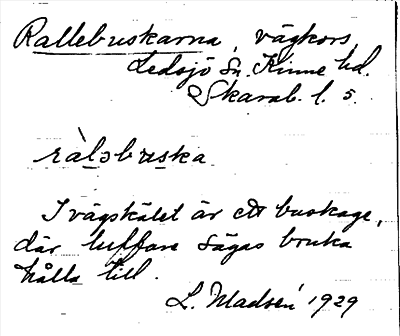 Rallebuskarna, vägkors,
Ledsjö Sn. Kinne hd.
Skarab. l. s.
ràlɔbuska
I vägskälet är ett buskage,
där luffare sägas bruka
hålla till.
L. Madsén 1929